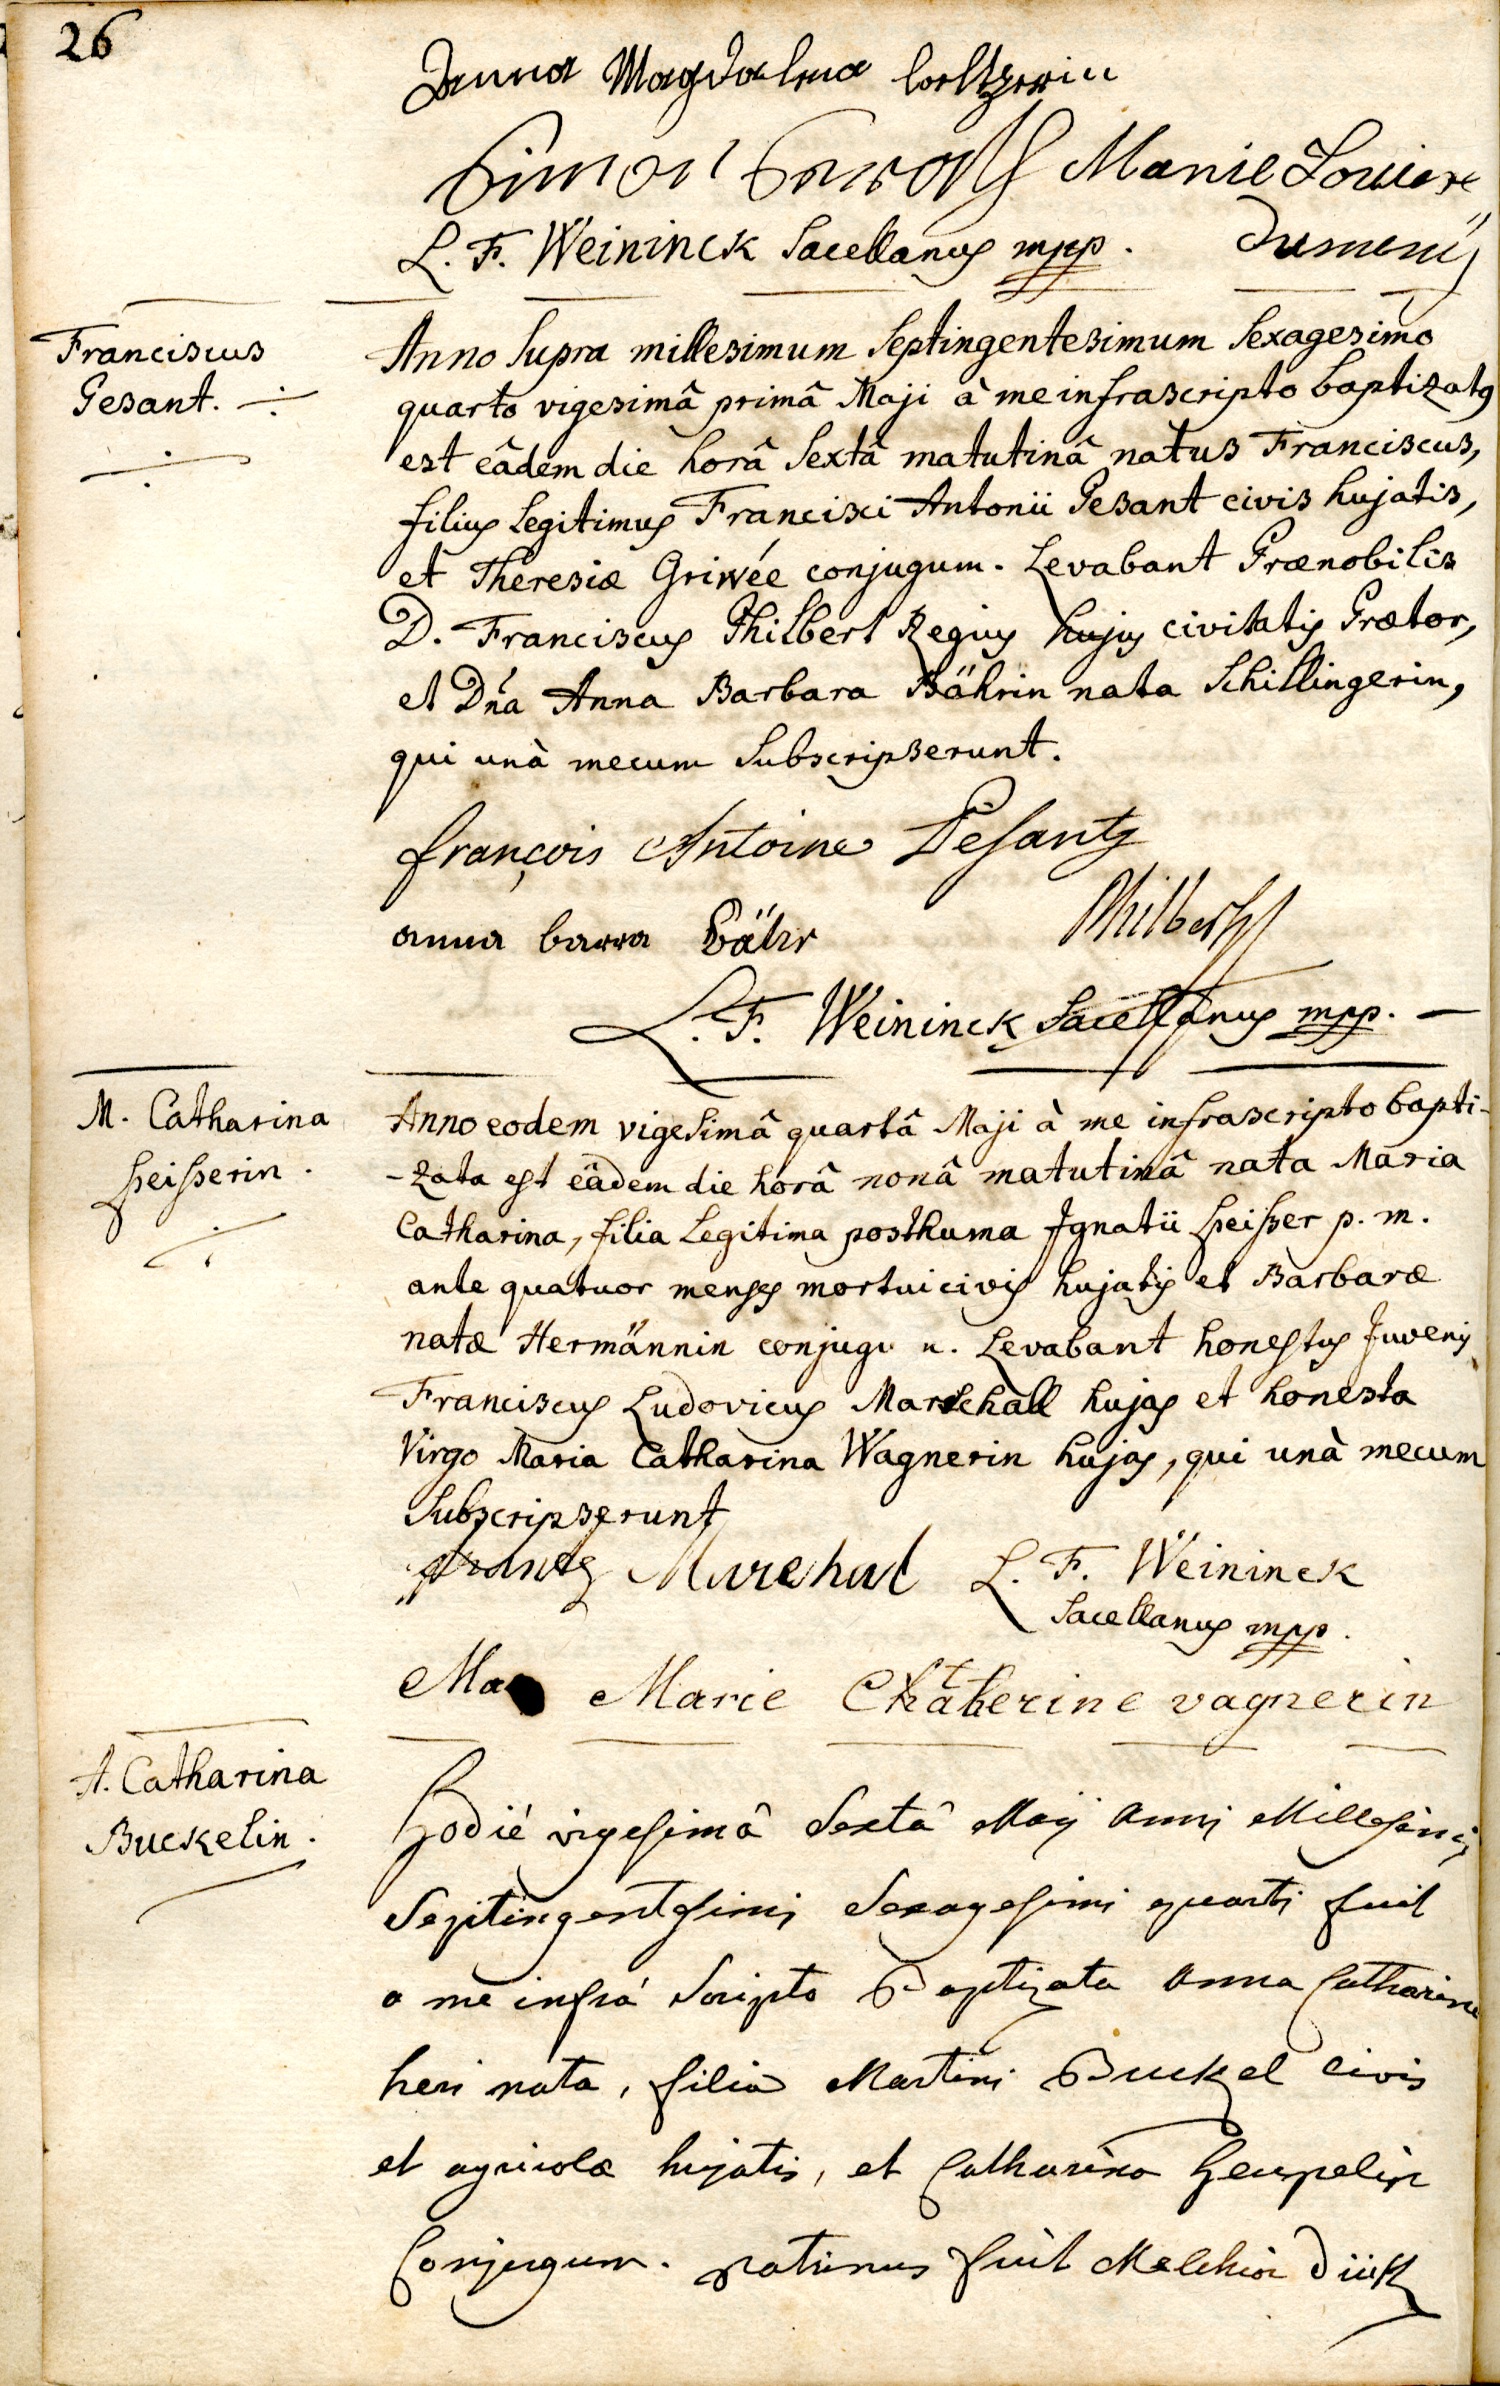 26
Anna Magdalena
Simon Marie Louise
L. F. Weininck Sacellanus mpp. 
Franciscus
Pesant.
Anno supra millesimum septingentesimum sexagesimo
quarto vigesimâ primâ Maji à me infrascripto baptizatus
est eâdem die horâ sextâ matutinâ natus Franciscus,
filius legitimus Francisci Antonii Pesant civis hujatis,
et Theresiæ Griwée conjugum. Levabant Prænobilis
D. Franciscus Philbert Regius hujus civitatis Prætor,
et Dna Anna Barbara Bährin nata Schillingerin,
qui unà mecum subscripserunt.
françois Antoine Pesant
anna barra Bähr Philbert
L. F. Weininck Sacellanus mpp.
M. Catharina
Anno eodem vigesimâ quartâ Maji à me infrascripto bapti-
-zata est eâdem die horâ nonâ matutinâ nata Maria
Catharina, filia legitima posthuma Ignatii p. m.
ante quatuor menses mortui civis hujatis et Barbaræ
natæ Hermännin conjugu n. Levabant honestus Juvenis
Franciscus Ludovicus Marschall hujas et honesta
Virgo Maria Catharina Wagnerin hujas, qui unà mecum
subscripserunt
frantz Marchal L. F. Weininck
Sacellanus mpp.
Ma Marie Chatherine vagnerin
A. Catharina
Buckelin.
Hodié vigesimâ sextâ Maij anni Millesimi
septingentesimi sexagesimi quarti fuit
a me infrá scripto Baptizata anna Catharina
heri nata, filia Martini Buckel civis
et agricolæ hujatis, et Catharina
Conjugum. patrinus fuit Melchior